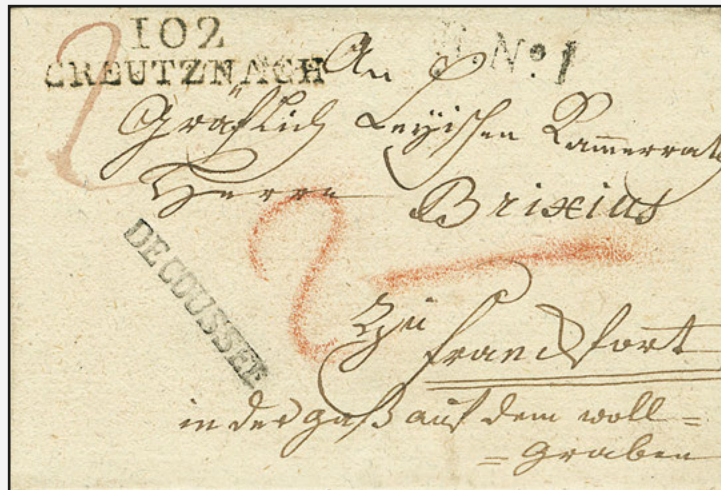 102
CREUTZNACH
R. No. 1
An
Gräflich Leyischen Kammerrath
Herrn Brixius
2
2
DECOUSSEE
Zu
Franckfort
in der gaß auf dem woll=
=graben